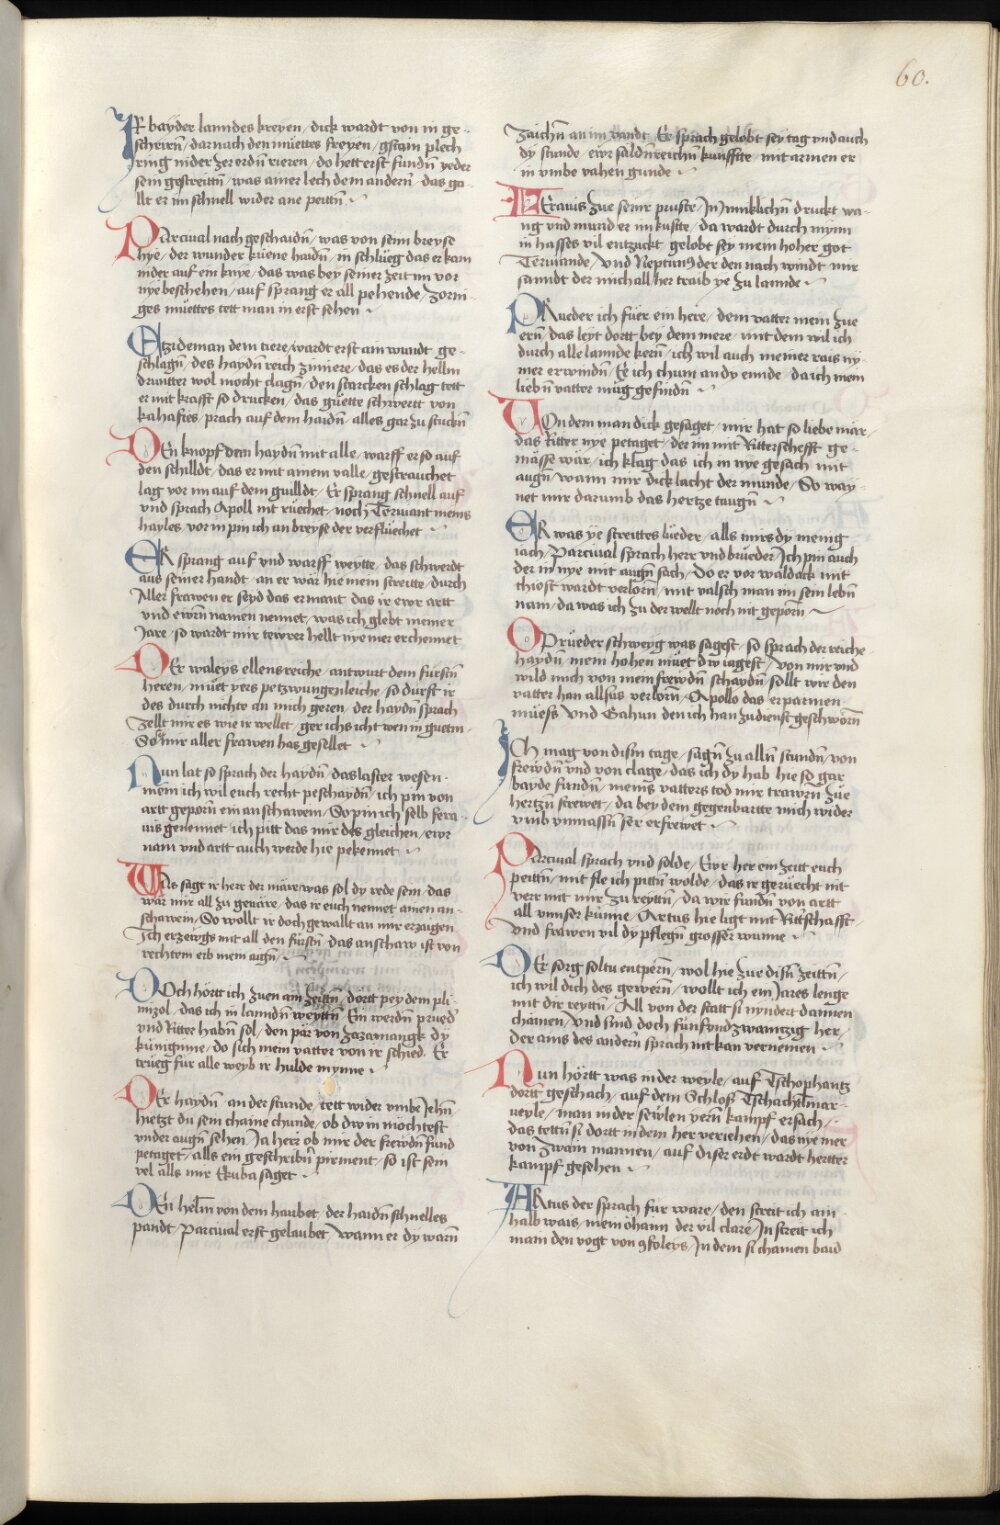 60.
IR bayder lanndes kreyen / dick wardt von in ge-
schrirn / darnach den müettes freyen / gstain plech
ring nider zer erdn̄ rieren / do hett erst fundn̄ yeder
sein gestreittn̄ / was ainer lech dem andern̄ das ga
llt er im schnell wider ane peittn̄
PArcival nach geschaidn̄ / was von seim breyse
hye / der wunder küene haidn̄ / in schlüeg das er kam
nider auf ein knye / das was bey seiner zeit im vor
nye beschehen / auf sprang er all pehende / zorni-
ges müettes tett man in erst sehen
ETzideman dem tiere / wardt erst ain wundt ge-
schlagn̄ / des haydn̄ reich zimiere / das es der hellm
druntter wol mocht clagn̄ / den starcken schlag tett
er mit krafft so drucken / das güette schwertt von
kahaftes / prach auf dem haidn̄ / alles gar zu stuckn̄
DEn knopf dem haydn̄ mit alle / warff er so auf
den schilldt / das er mit ainem valle / gestrauchet
lag vor im auf dem guilldt / Er sprang schnell auf
vnd sprach Apoll nit rüechet / noch Terviant meins
hayles / vor in pin ich an breyse der verflüechet
ER sprang auf vnd warff weytte / das schwerdt
aus seiner handt / an er wär hie mein streitte / durch
Aller frawen er seyd das ermant / das ir ewr artt
vnd ewrn̄ namen nennet / was ich glebt meiner
Jare / so wardt mir tewrer hellt nye mer erchennet
DEr waleys ellensreiche / antwurt dem fürstn̄
heren / müet yers petzwungenleiche / so durft ir
des durch nichte an mich geren / der haydn̄ sprach
zellt mir es wie ir wellet / ger ichs icht wen in guetm
So mir aller frawen has gesellet
NUn lat so sprach der haydn̄ / das laster wesen
mein ich wil euch recht peschaydn̄ / ich pin von
artt geporn̄ ein anschawein / So pin ich selb fera
uis genennet / ich pitt das mir des gleichen / ewr
nam vnd artt auch werde hie pekennet
WAs sagt ir herr der märe / was sol dy rede sein / das
wär mir all zu geuäre / das ir euch nennet ainen an-
schawein / So wollt ir doch gewallt an mir erzaigen
Ich erzewgs mit all den fürstn̄ / das anschaw ist von
rechtem erb mein aign̄
DOch hörtt ich zuen ain zeittn̄ / dortt pey dem pli
mizol / das ich in lanndn̄ weyttn̄ Ein werdn̄ prued̓
vnd Ritter habn̄ sol / den pär von Zazamangk dy
küniginne / do sich mein vatter von ir schied Er
trüeg für alle weyb ir hulde mynne
DEr haydn̄ an der stunde / tett wider vmbe Jehn̄
hietzt du sein chaine chunde / ob dw in möchtest
vnder augn̄ sehen Ja herr ob mir der frewdn̄ fund
petaget / alls ein geschribn̄ pirment / so ist sein
vel alls mir Ekuba saget
DEn helm̄ von dem haubet / der haidn̄ schnelles
pandt / Parcival erst gelaubet / Wann er dy warn̄
zaichn̄ an im vandt / Er sprach gelobt sey tag vnd auch
dy stunde / ewr säldn̄reichn̄ kunffte / mit armen er
in vmbe vahen gunde
FEravis zue seinr pruste / In minklichn̄ druckt wa-
ng vnd mund er im kuste / da wardt durch mynn
in hasses vil entzuckt / gelobt sey mein hoher got
Tervian̄de / Vnd Neptun9 der den nach windt mir
sanndt der mich all her traib ye zu lannde
PRueder ich füer ein here / dem vatter mein zue
ern̄ / das leyt dortt bey dem mere / mit dem wil ich
durch alle lannde kern̄ / ich wil auch meiner rais ny-
mer erwindn̄ / Ee ich chum an dy ennde / da ich mein
liebn̄ vatter müg gefindn̄
VOn dem man dick gesaget / mir hat so liebe mär
das Ritter nye petaget / der im mit Ritterschefft ge-
mässe wär / ich klag das ich in nye gesach mit
augn̄ / wann mir dick lacht der munde / So way-
net mir darumb das hertze taugn̄
ER was ye streittes lüeder / alls mirs dy menig
iach / Parcival sprach herr vnd brueder / Ich pin auch
der in nye mit augn̄ sach / Do er vor waldack mit
thiost wardt verlorn̄ / mit valsch man im sein lebn̄
nam / da was ich zu der wellt noch nit geporn̄
O Prüeder schweyg was sagest / so sprach der reiche
haydn̄ / mein hohen müet dw iagest / von mir vnd
wild mich von mein frewdn̄ schaydn̄ / sollt wir den
vatter han allsus verlorn̄ / Apollo das erparmen
müess Vnd Gahun den ich han zu dienst geschworn̄
ICh mag von disin tage / sagn̄ zu alln̄ stundn̄ / von
frewdn̄ vnd von clage / das ich dy hab hie so gar
bayde fundn̄ / meins vatters tod mir trawrn̄ zue
hertzn̄ strewet / da bey dein gegenbartte mich wider
vmb vnmassn̄ ser erfrewet
PArcival sprach vnd solde / Ewr her ein zeitt euch
peittn̄ / mit fle ich pittn̄ wolde / das ir geruecht nit
verr mit mir zu reyttn̄ / da wir fundn̄ von artt
all vnnser künne / Artus hie ligt mit Rittschafft
Vnd frawen vil dy pflegn̄ grosser wunne
DEr sorg soltu entpern̄ / wol hie zue disn̄ zeittn̄ /
ich wil dich des gewern̄ / wollt ich ein Jares lenge
mit dir reyttn̄ / All von der statt si nyndert dannen
chamen / Vnd sind doch fünfvndzwaintzig her /
Der ains des andern̄ sprach nit kan vernemen
NUn hörtt was in der weyle / auf Tschophantz
dortt geschach / auf dem Schlos Tschachtlmar-
veyle / man in der sewlen yern̄ kampf ersach /
das tettn̄ si dortt in dem her veriehen / das nye mer
von zwain mannen / auf diser erdt wardt hertter
kampf gesehen
ARtus der sprach für ware / den streit ich ain-
halb wais / mein öhaim der vil clare / In streit ich
main den vogt von 9foleys / In dem si chamen baid